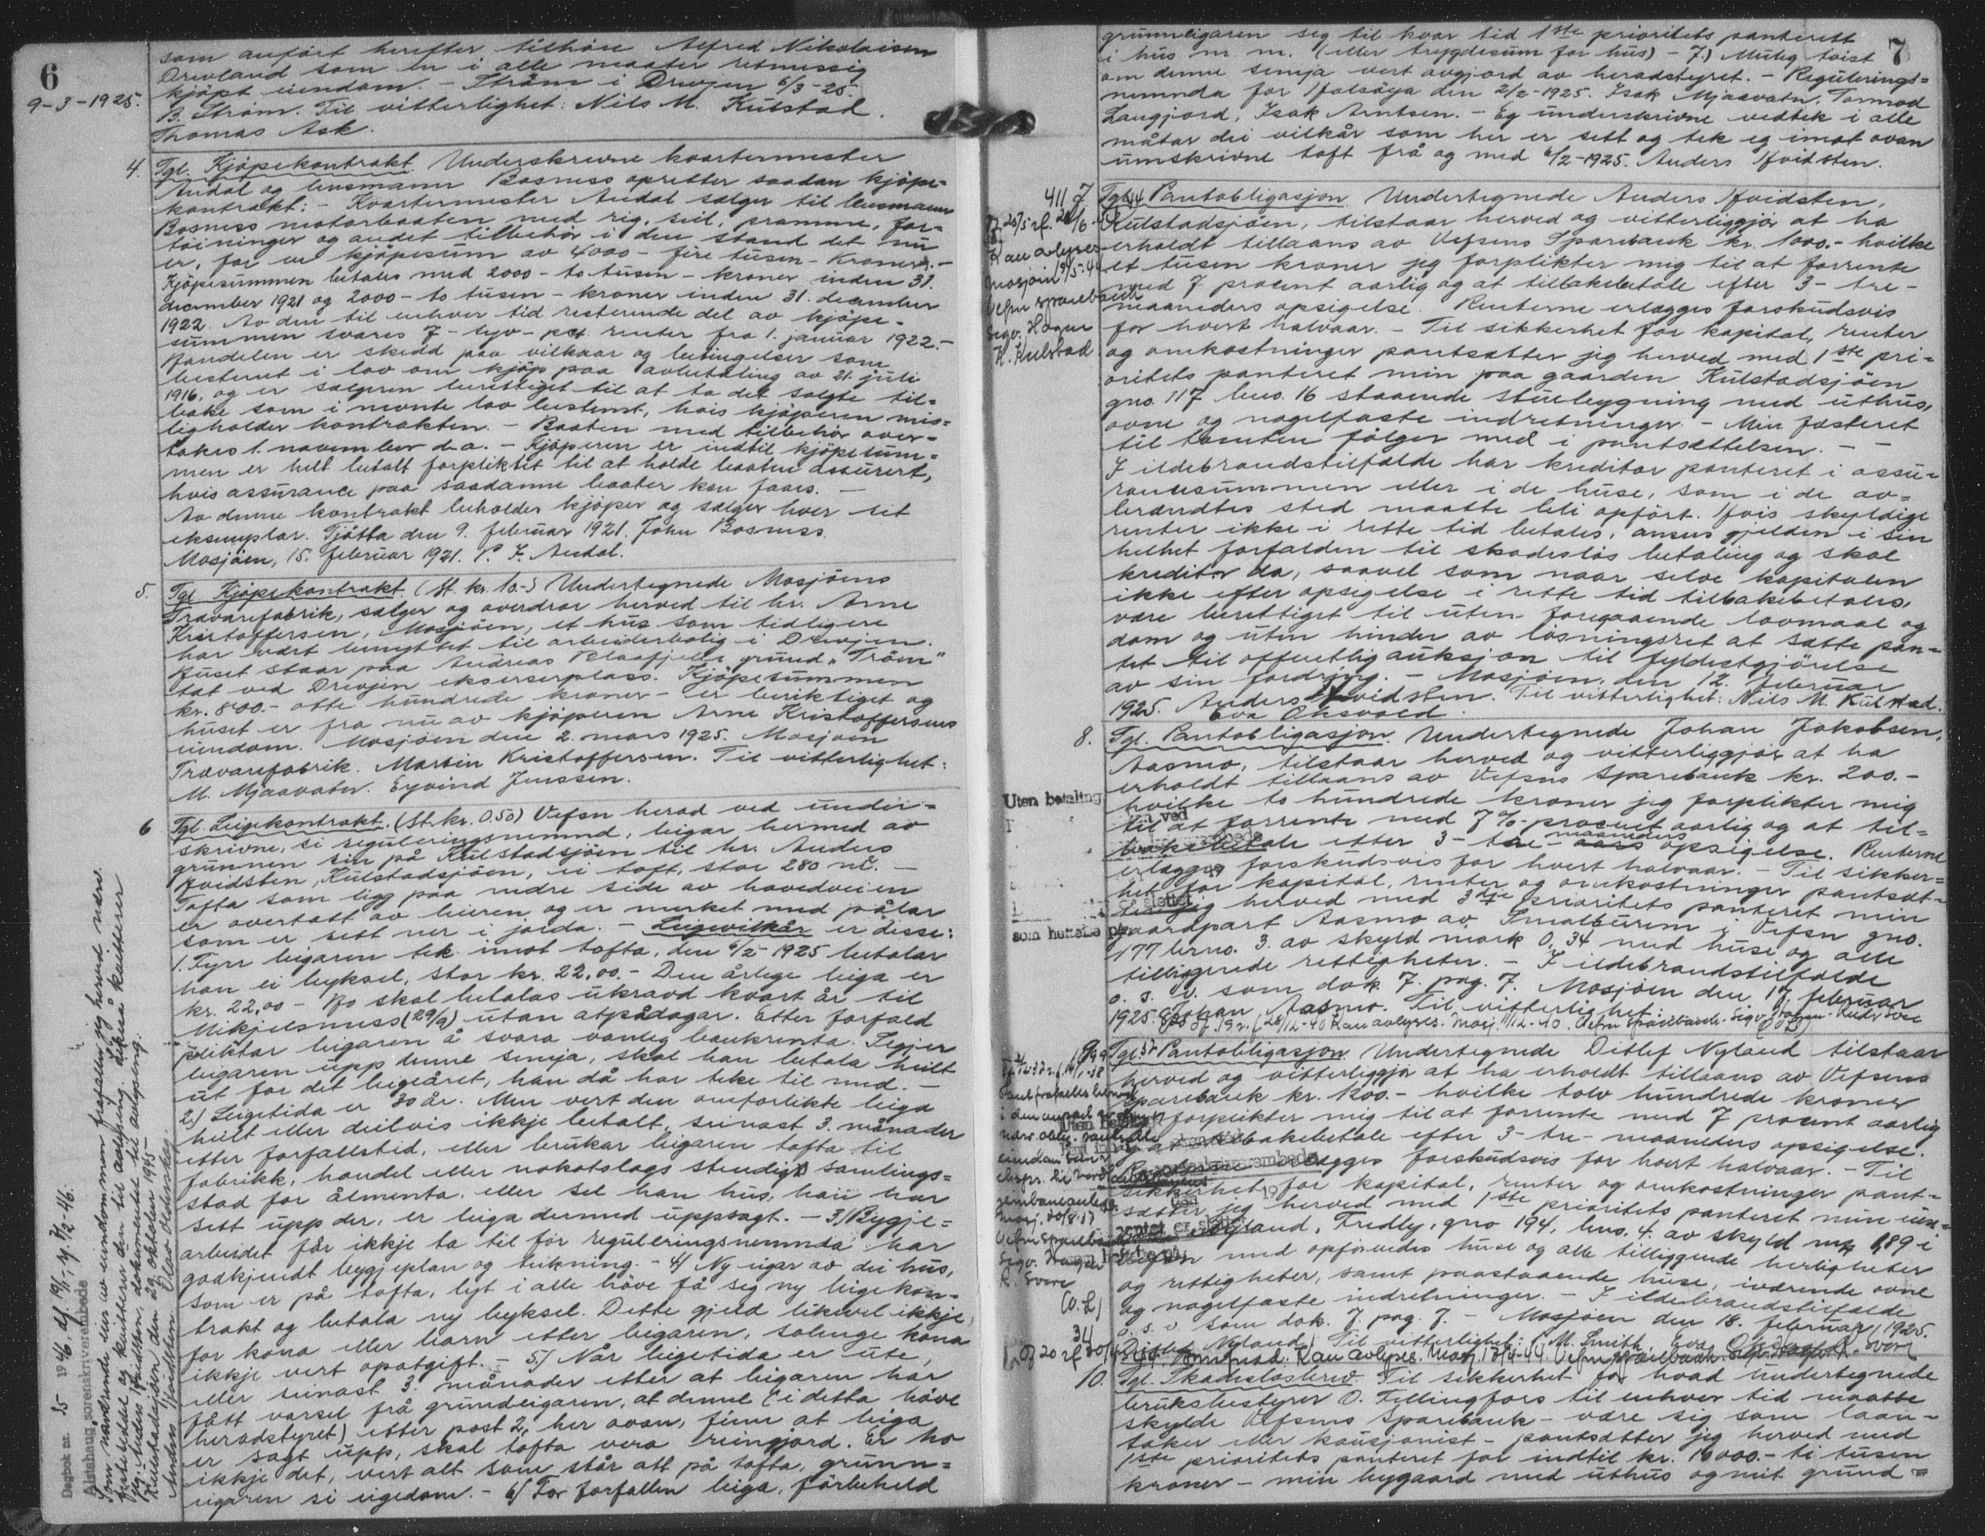 6
9-3-1925.
som anført herefter tilhøre Alfred Nikolaisen
Drevland som er i alle maater retmessig
kjøpt eiendom. - Strøm i Drevjen 6/3-25.
B. Strøm. Til vitterlighet: Nils M. Kulstad.
Thomas Ask.
4. Tgl. Kjøpekontrakt. Underskrevne kvartermester
Andal og lensmann Bosness opretter saadan kjøpe-
kontrakt: - Kvartermester Andal sælger til lensmann
Bosness motorbaaten med rig, seil, pramme, for-
tøininger og andet tilbehør i den stand det nu
er, for en kjøpesum av 4000 - fire tusen - Kroner. -
Kjøpesummen betales med 2000 - to tusen - kroner inden 31.
december 1921 og 2000 - to tusen - kroner inden 31. december
1922. Av den til enhver tid resterende del av kjøpe-
summen svares 7 - syv - pct renter fra 1. januar 1922. -
Handelen er skedd paa vilkaar og betingelser som
bestemt i lov om kjøp paa avbetaling av 21. juli
1916, og er sælgeren berettiget til at ta det solgte til-
bake som i nevnte lov bestemt, hvis kjøperen mis-
ligholder kontrakten. - Baaten med tilbehør over-
takes 1. november d.a. - Kjøperen er indtil kjøpesum-
men er helt betalt forpliktet til at holde baaten assurert,
hvis assurance paa saadanne baater kan faaes. -
Av denne kontrakt beholder kjøper og sælger hver sit
eksemplar. Tjøtta den 9. februar 1921. John Bosness.
Mosjøen, 15. februar 1921. P. J. Andal.
5. Tgl. Kjøpekontrakt. (St. kr. 10.-) Undertegnede Mosjøens
Trævarefabrik, sælger og overdrar herved til hr. Arne
Kristoffersen, Mosjøen, et hus som tidligere
har vært benyttet til arbeiderbolig i Drevjen.
Huset staar paa Andreas grund "Trøm"
tæt ved Drevjen ekserserplass. Kjøpesummen
kr. 800.- otte hundrede kroner - er beriktiget og
huset er fra nu av kjøperen Arne Kristoffersens
eiendom. Mosjøen den 2. mars 1925. Mosjøen
Trævarefabrik. Martin Kristoffersen. Til vitterlighet:
M. Mjaavatn. Eyvind Jenssen.
6 Tgl. Leigekontrakt. (St. kr. 0.50) Vefsn herad ved under-
skrivne, si reguleringsnemnd, leigar hermed av
grunnen sin på Kulstadsjøen til hr. Anders
Hvidsten, Kulstadsjøen, ei toft, stor 280 m². -
Tofta som ligg paa nedre side av hovedveien
er overtatt av leieren og er merket med pålar
som er sett ner i jorda. - Leigevilkår er disse:
1. Fyrr leigaren tek imot tofta, den 6/2 1925 betalar
han ei byksel, stor kr. 22,00. - Den årlege leiga er
kr. 22,00 - Ho skal betalas ukravd kvart år til
Mikjelsmess (29/9) utan atpådagar. Etter forfald
pliktar leigaren å svara vanleg bankrenta. Segjer
leigaren upp denne semja, skal han betala heilt
ut for det leigeåret, han då har teke til med. -
2.) Leigetida er 30 år. Men vert den omforlikte leiga
heilt eller deilvis ikkje betalt, seinast 3. månader
etter forfallstid, eller brukar leigaren tofta til
fabrikk, handel eller nokotslags stendig samlings-
stad for ålmenta, eller sel han hus, han har
sett upp der, er leiga dermed uppsagt. - 3.) Bygje-
arbeidet får ikkje ta til før reguleringsnemnda har
godkjendt bygjeplan og teikning. - 4) Ny eigar av dei hus,
som er på tofta, lyt i alle høve få seg ny leigekon-
trakt og betala ny byksel. Dette gjeld likevel ikkje,
for kona eller barn etter leigaren, solenge kona
ikkje vert opatgift. - 5.) Når leigetida er ute,
eller seinast 3. månader etter at leigaren har
fått varsel frå grundeigaren, at denne (i detta høve
heradstyret) etter post 2, her ovan, finn at leiga
er sagt upp, skal tofta vera reingjord. Er ho
ikkje det, vert alt som står att på tofta, grunn-
eigaren si eigedom. - 6) For forfallen leiga, forbeheld
Dagbok nr. 25 1946. df. 19/1 - y. 7/2 46.
Alstahaug sorenskriverembede
Som nærværende eier av eiendommen frafaller jeg herved nedre
festeseddel og kvitterer den til avlysning. Likeså kvitterer
jeg, Anders Hvidtsten, dokumentet til avlysning.
Kulstadsjøen den 29. oktober 1945
Anders Hvidtsten Olea
7
grunneigaren seg til kvar tid 1ste prioritets panterett
i hus m. m. (eller trygdesum for hus) - 7.) Muleg tvist
om denne semja vert avgjord av heradstyret. - Regulerings-
nemnda for Halsøya den 2/2-1925. Isak Mjaavatn. Tormod
Langjord, Isak Arntsen. - Eg underskrivne vedtek i alle
måtar dei vilkår som her er sett og tek eg imot ovan
umskrivne toft frå og med 6/2-1925. Anders Hvidsten.
7 Tgl. Pantobligasjon. Undertegnede Anders Hvidsten,
Kulstadsjøen, tilstaar herved og vitterliggjør at ha
erholdt tillaans av Vefsens Sparebank kr. 1000.- hvilke
et tusen kroner jeg forplikter mig til at forrente
med 7 procent aarlig og at tilbakebetale efter 3 - tre -
maaneders opsigelse. Renterne erlægges forskudsvis
for hvert halvaar. - Til sikkerhet for kapital, renter
og omkostninger pantsætter jeg herved med 1ste pri-
oritets panteret min paa gaarden Kulstadsjøen
gno. 117 bno. 16 staaende stuebygning med uthus,
ovne og nagelfaste indretninger. - Min festeret
til tomten følger med i pantsættelsen. - -
I ildebrandstilfælde har kreditor panteret i assu-
rancesummen eller i de huse, som i de av-
brændtes sted maatte bli opført. Hvis skyldige
renter ikke i rette tid betales, anses gjelden i sin
helhet forfalden til skadesløs betaling og skal
kreditor da, saavel som naar selve kapitalen
ikke efter opsigelse i rette tid tilbakebetales,
være berettiget til uten foregaaende lovmaal og
dom og uten hinder av løsningsret at sætte pan-
tet til offentlig auksjon til fyldestgjørelse
av sin fordring. - Mosjøen, den 12. februar
1925. Anders Hvidsten. Til vitterlighet: Nils M. Kulstad.
Eva Oksvold.
Kan avlyses
Mosjøen 19/5-44
Vefsn sparebank
Sigv. Hagen
K. Kulstad
8. Tgl. Pantobligasjon. Undertegnede Johan Jakobsen,
Aasmo, tilstaar herved og vitterliggjør at ha
erholdt tillaans av Vefsns Sparebank kr. 200.-
hvilke to hundrede kroner jeg forplikter mig
til at forrente med 7 % procent aarlig og at til-
bakebetale efter 3 - tre - maaneders opsigelse. Renterne
erlægges forskudsvis for hvert halvaar. - Til sikker-
het for kapital, renter og omkostninger pantsæt-
ter jeg herved med 3dje prioritets panteret min
gaardpart Aasmo av Smalburem i Vefsn gno.
177 brno. 3. av skyld mark 0,34 med huse og alle
tilliggende rettigheter. - I ildebrandstilfælde
o. s. v. som dok. 7. pag. 7. Mosjøen den 17 februar
1925. Johan Aasmo. Til vitterlighet:
Kan avlyses. Mosj. 11/12-40. Vefsn Sparebank. Sigv. Hagen.
Uten betaling
som heftelse på
er slettet
9. Tgl. Pantobligasjon. Undertegnede Ditlef Nyland tilstaar
herved og vitterliggjør at ha erholdt tillaans av Vefsens
Sparebank kr. 1200.- hvilke tolv hundrede kroner
jeg forplikter mig til at forrente med 7 procent aarlig
og at tilbakebetale efter 3 - tre - maaneders opsigelse.
Renterne erlægges forskudsvis for hvert halvaar. - Til
sikkerhet for kapital, renter og omkostninger pant-
sætter jeg herved med 1ste prioritets panteret min eien-
dom Nyland, Fredly, gno 194, bno. 4. av skyld mrk 1,89 i
Vefsn med opførendes huse og alle tilliggende herligheter
og rettigheter, samt paastaaende huse, iværende ovne
og nagelfaste indretninger. - I ildebrandstilfælde
o. s. v. som dok. 7 pag. 7. - Mosjøen den 18. februar 1925.
Ditlef Nyland. Til vitterlighet: P. M. Smith. Eva Oksvold.
Kan avlyses. Mosj. 13/4-44. Vefsn Sparebank.
10. Tgl. Skadesløsbrev. Til sikkerhet for hvad undertegnede
bruksbestyrer O. Fellingfors til enhver tid maatte
skylde Vefsens Sparebank - være sig som laan-
taker eller kausjonist - pantsætter jeg herved med
1ste prioritets panteret for indtil kr. 10000.- ti tusen
kroner - min bygaard med uthus og mit grund-